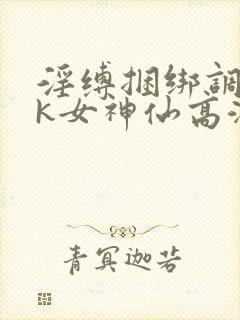 淫缚捆绑調
K女神仙高
青冥迦若